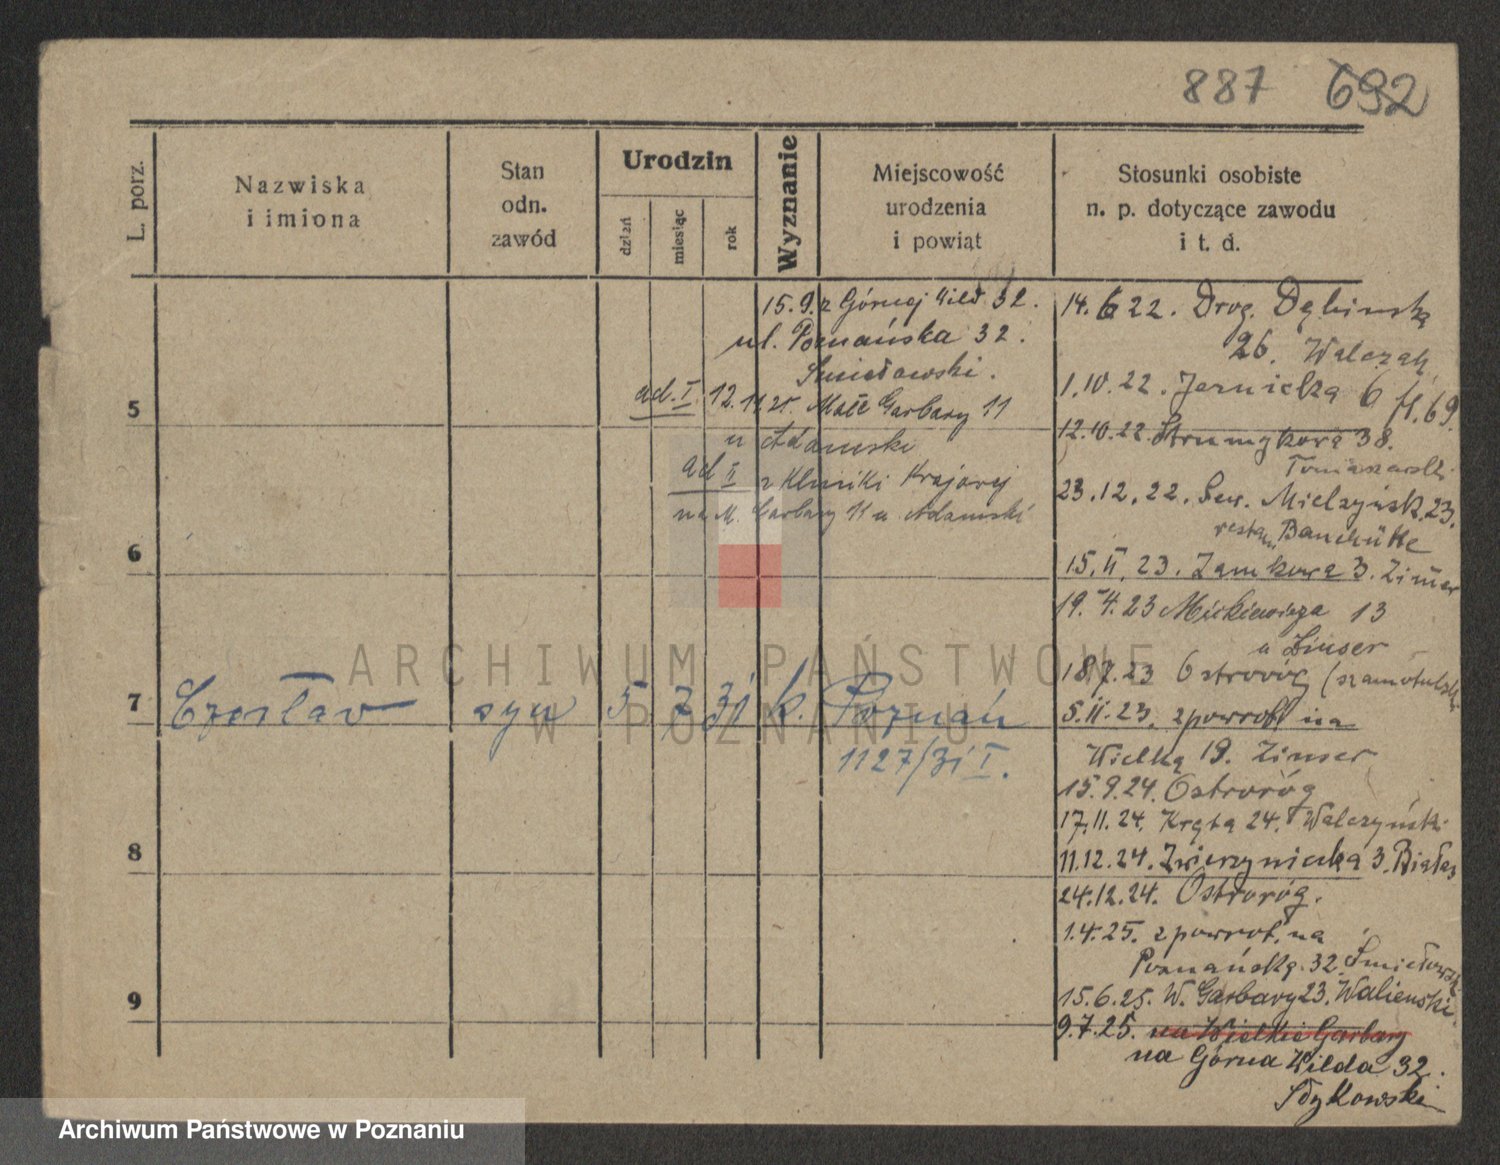 887 692
L. porz.
Nazwiska
i imiona
Stan
odn.
zawód
Urodzin
dzień
miesiąc
rok
Wyznanie
Miejscowość
urodzenia
i powiat
Stosunki osobiste
n. p. dotyczące zawodu
i t. d.
15.9. z Górnej Wild 32.
ul. Poznańska 32.
Śmiełowski.
ad. I 12. 11 25. Małe Garbary 11
u Adamski
ad II z Kliniki Krajowej
na M. Garbary 11 u Adamski
5
6
7
Czesław syn 5 7 31 k. Poznań
1127/31 I.
8
9
14.6 22. Drog. Dębinską
26. Walczak
1.10.22. Jernicka 6 H.69.
12.10.22. Strumykowa 38.
23.12.22. Sew. Mielżyńsk. 23.
15.II.23. Zamkowa 3.
19.4.23 Mickiewicza 13
u Zinser
18.7.23 Ostroróg (szamotulski
5.11.23. zpowrot na
Wielką 19. Zinser
15.9.24. Ostroróg
17.11.24. Kręta 24. Walczyński
11.12.24. Zwierzyniecka 3. Białas
24.12.24. Ostroróg.
1.4.25. zpowrot. na
Poznańską. 32. Śmiełowsk.
15.6.25. W. Garbary 23. Walienski.
9.7.25. na Wielkie Garbary
na Górna Wilda 32.
Stykowski
ARCHIWUM PAŃSTWOWE
W POZNANIU
Archiwum Państwowe w Poznaniu